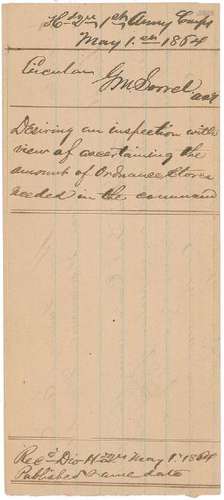 Hd Qrs 1st Army Corps
May 1. 1864
Circular
G M Sorrel
AAG
Desiring an inspection with
view of ascertaining the
amount of Ordnance Stores
needed in the command
Recd Div Hd Qrs May 1st 1864
Published same date